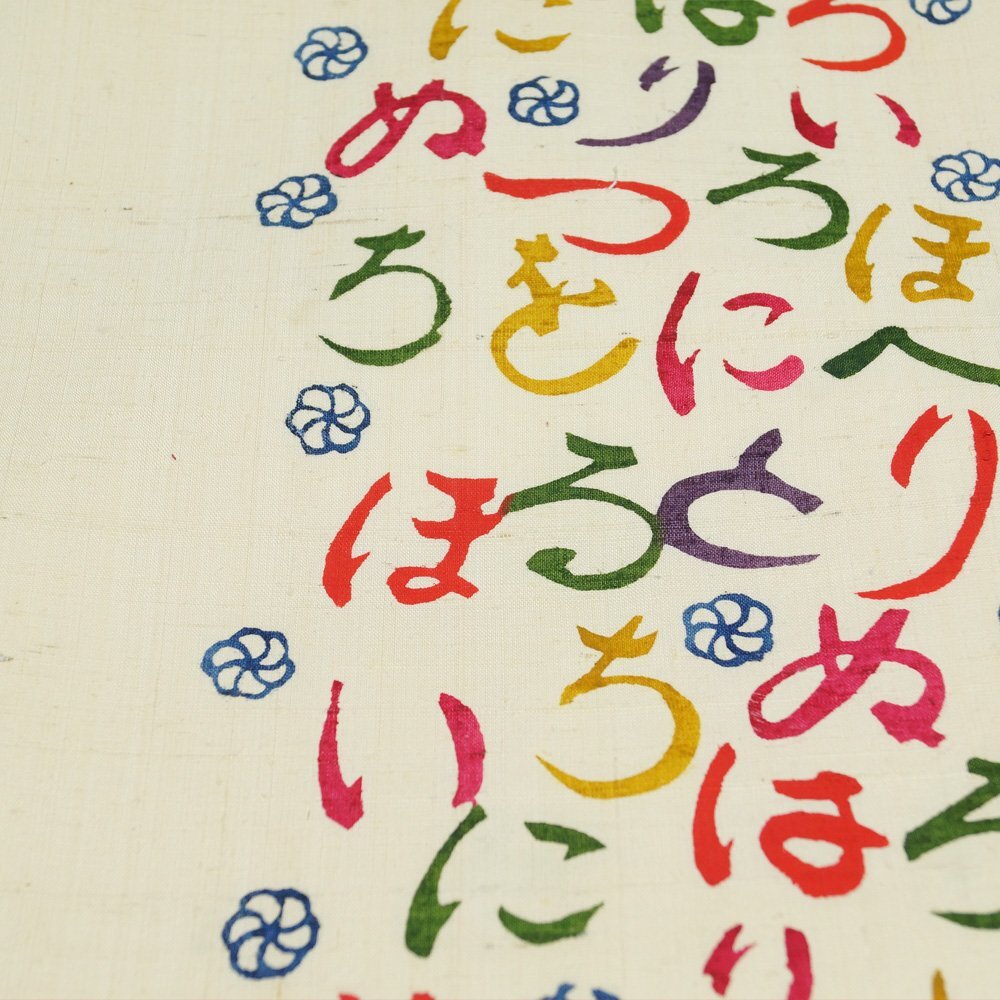 に は ろ
ぬ り い
つ ろ ほ
ち を に へ
ほ る と り
ち ぬ
い に は ろ
り